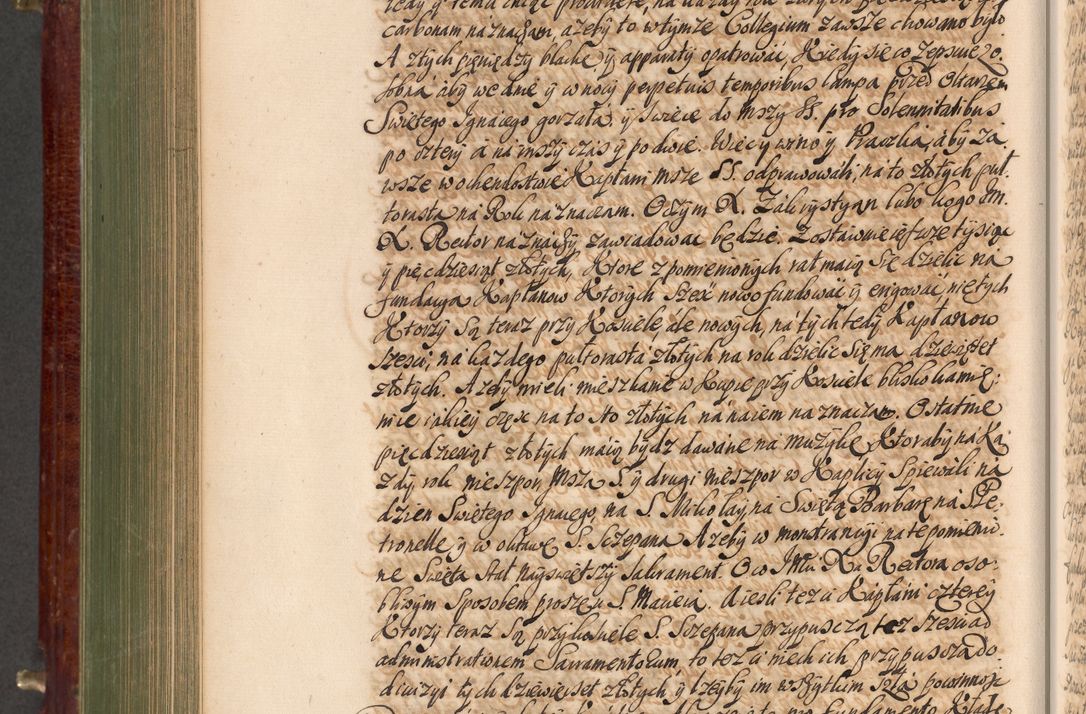 carbonam naznaczam, a żeby to w tymże Collegium zawsze chowano było
A z tych pieniędzy blachę, y apparaty opatrować, Kiedy się co zepsuie, o
sobna aby we dnie y w nocy perpetuis temporibus lampa przed Ołtarzem
Swiętego Ignacego gorzała, y swiece do mszy SS. pro Solennitatibus
po cztery a na inszy czas y po dwie. Więc y wino y aby za
wsze w ochendostwie Kapłani msze SS. odprawowali, na to złotych puł,
torasta na Rok naznaczam. O czym X. Zakrystyan lubo kogo Im.
X. Rector naznaczy zawiadować będzie. Zostawuie ieszcze tysiąc
y pięcdziesiąt złotych, Ktore z pomienionych rat maią się dzielic na
fundacya Kapłanow Ktorych szesc nowo fundować y erigować, nie tych
Ktorzy są teraz przy Kosciele ale nowych, na tych tedy Kapłanow
szesci, na każdego pułtorasta złotych na rok dzielic się ma dziewięset
złotych. A żeby mieli mieszkanie w Kupie przy Kosciele blisko kamie,
nice iakiey częsc na to sto złotych na naiem naznaczam. Ostatnie
pięcdziesiąt złotych maią bydz dawane na muzykę, Ktoraby na Ka,
zdy rok nieszpor, Msza S. y drugi nieszpor w Kaplicy spiewali na
dzien Swiętego Ignacego, na S. Mikołay, na Swiętą Barbarę, na S. Pe,
tronelle y w oktawę S. Sczepana A żeby w monstrancyi na te pomienio,
ne Swięta stał Nayswiętszy Sakrament. O co IMci Xa Rectora oso,
bliwym sposobem proszę u S. Macieia. A iesli też ci Kapłani czterey
Ktorzy teraz są przy kosciele S. Sczepana przypuszczą tez szesci ad
administrationem Sacramentorum, to też ci niech ich przypuszczą do
diwizyi tych dziewięciset złotych, y liczyły im wszytkim powinnosc